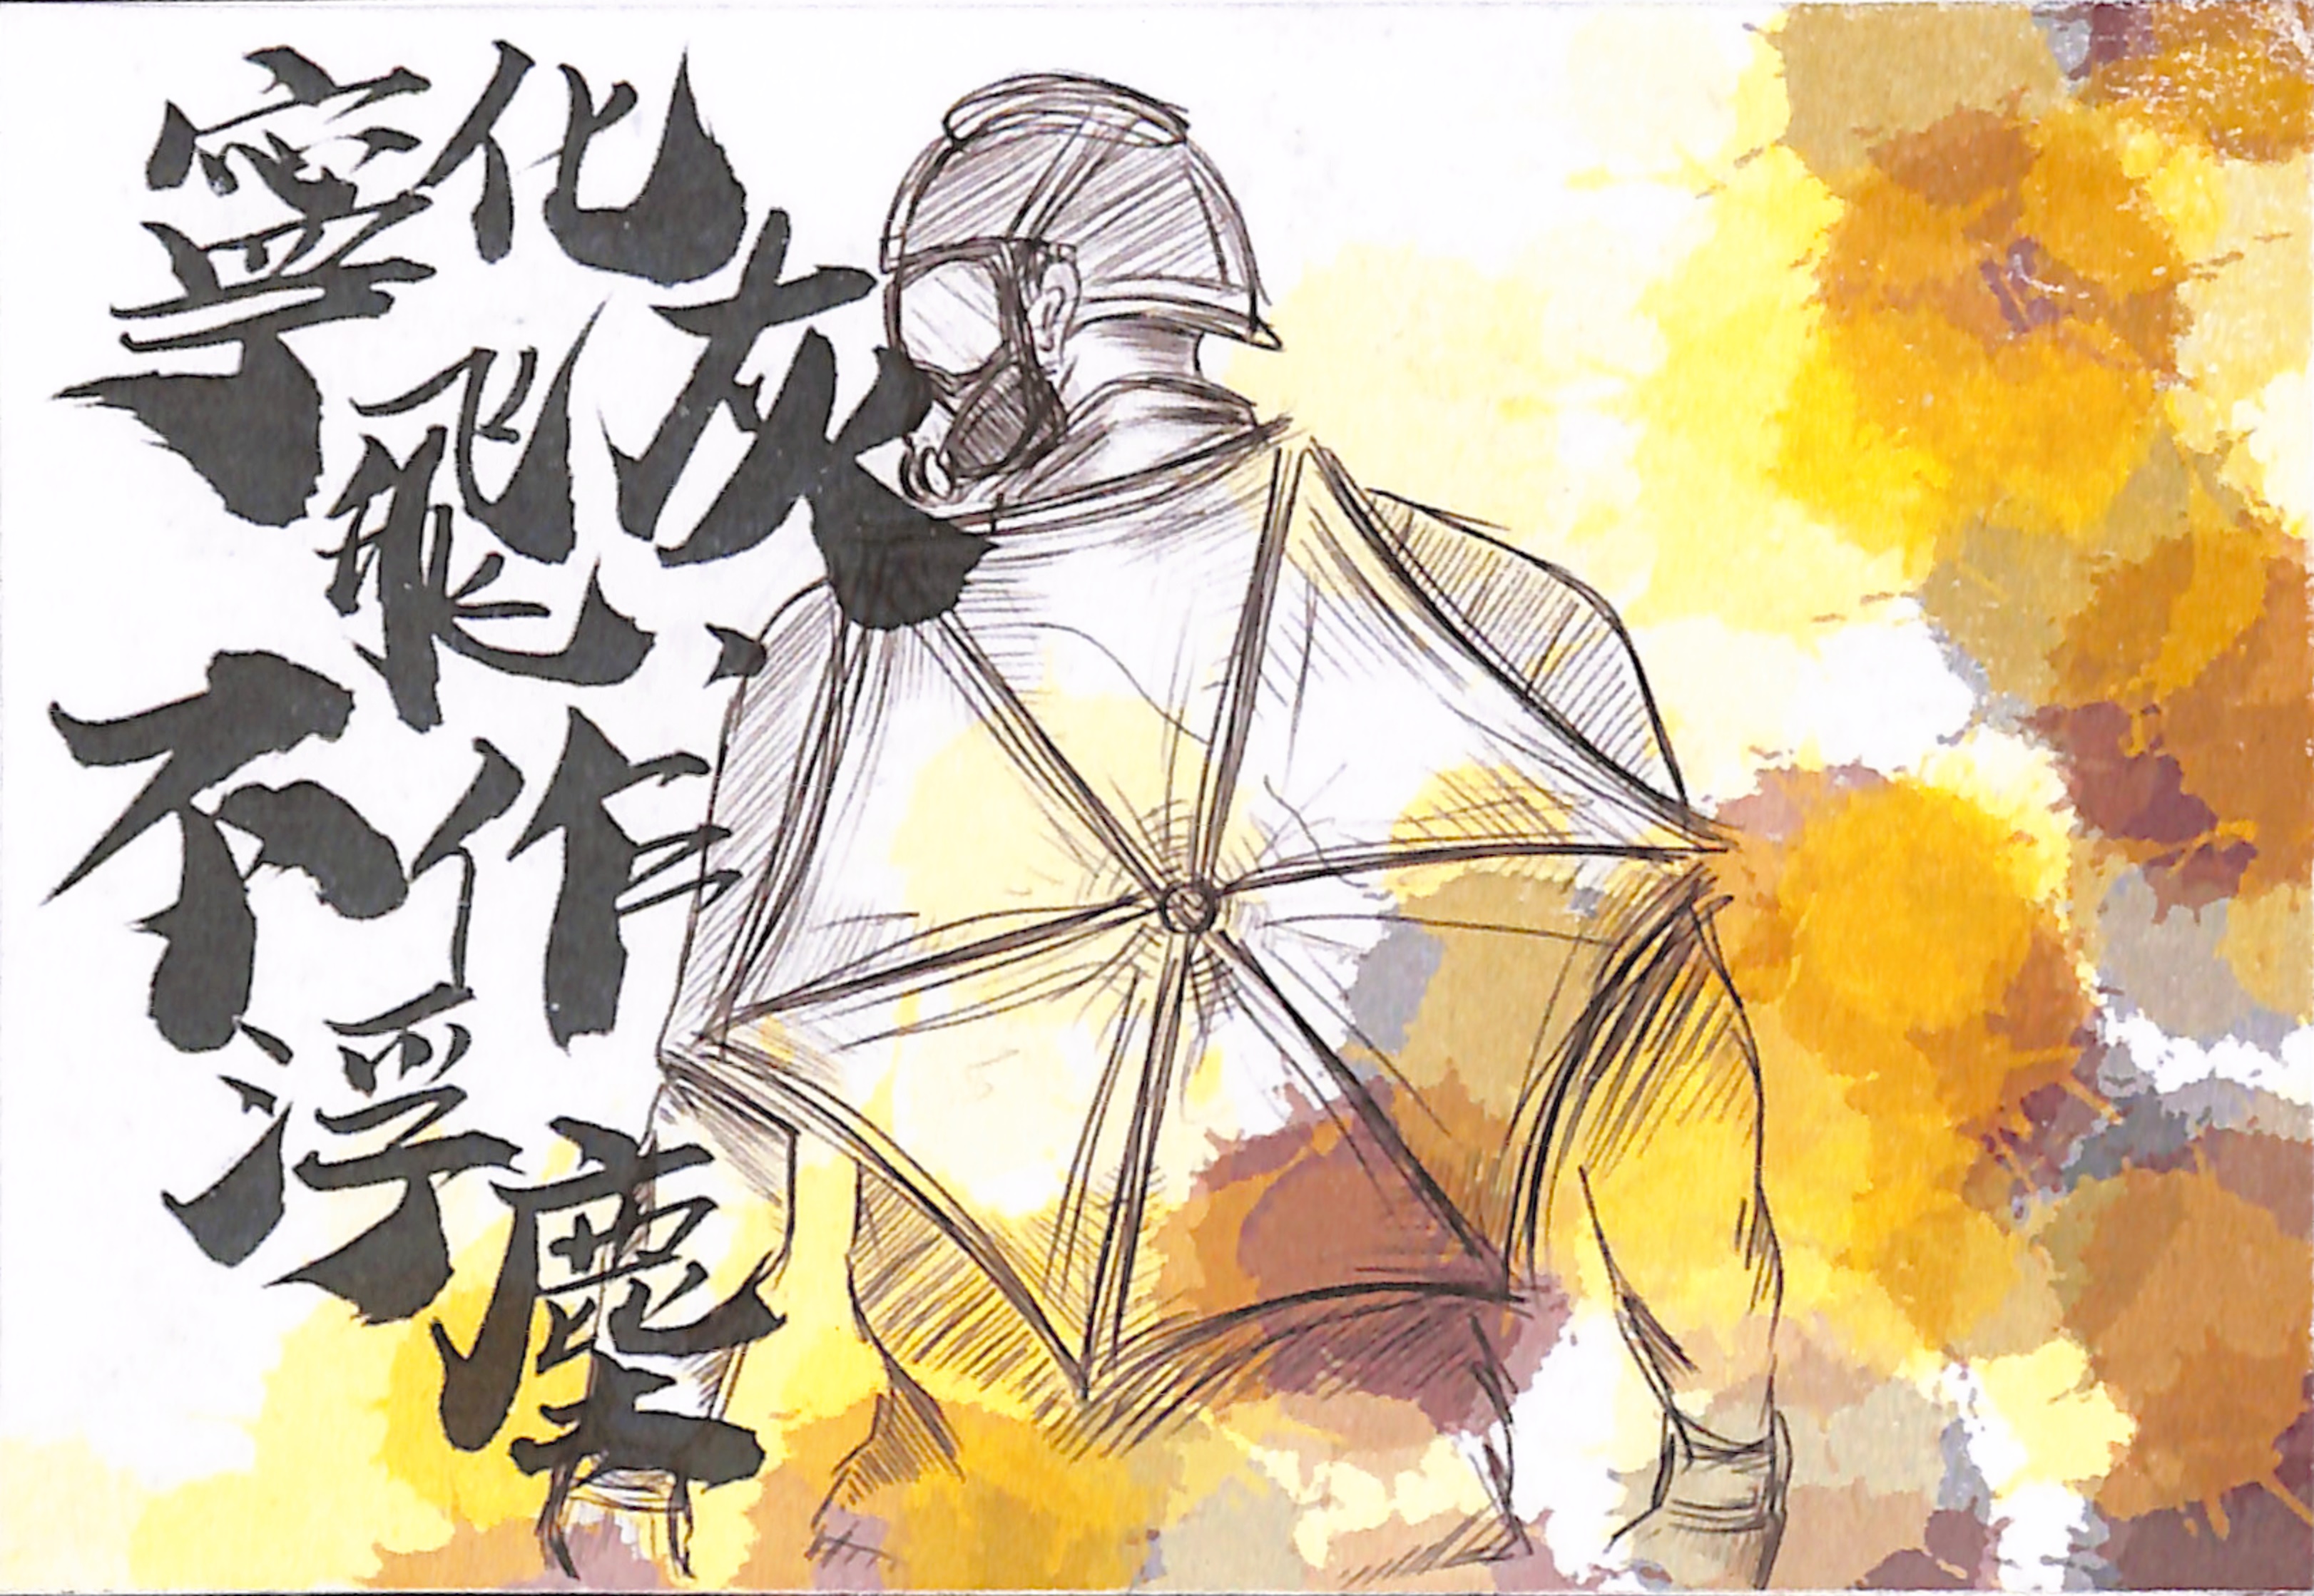 寧化飛灰、
不作浮塵